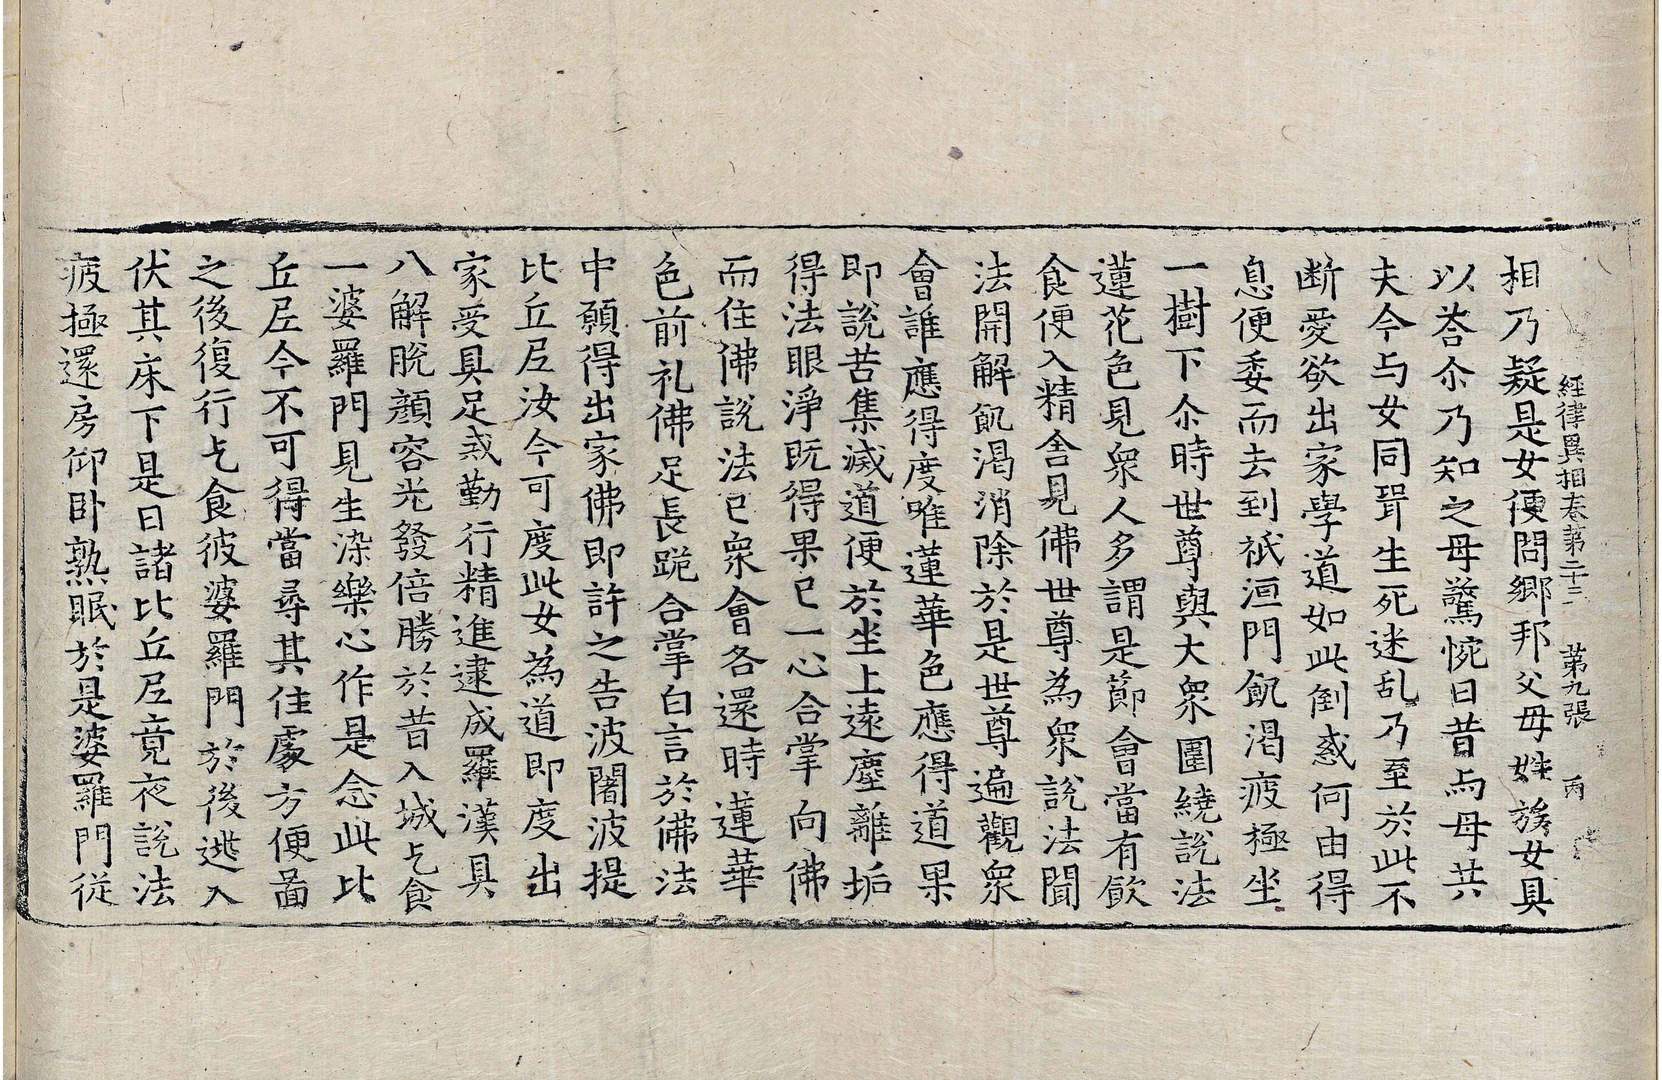 經律異相卷第二十三 第九張 丙
相乃疑是女便問鄉邦父母姓族女具
以荅尒乃知之母驚惋曰昔与母共
夫今与女同聓生死迷乱乃至於此不
断愛欲出家學道如此倒惑何由得
息便委而去到祇洹門飢渴疲極坐
一樹下尒時世尊與大衆圍繞說法
蓮花色見衆人多謂是節會當有飲
食便入精舍見佛世尊為衆說法聞
法開解飢渴消除於是世尊遍觀衆
會誰應得度唯蓮華色應得道果
即說苦集滅道便於坐上遠塵離垢
得法眼淨既得果已一心合掌向佛
而住佛說法已衆會各還時蓮華
色前礼佛足長跪合掌白言於佛法
中願得出家佛即許之告波闍波提
比丘尼汝今可度此女為道即度出
家受具足戒勤行精進逮成羅漢具
八解脫顏容光發倍勝於昔入城乞食
一婆羅門見生染樂心作是念此比
丘尼今不可得當尋其住處方便啚
之後復行乞食彼婆羅門於後逃入
伏其床下是日諸比丘尼竟夜說法
疲極還房仰卧熟眠於是婆羅門從